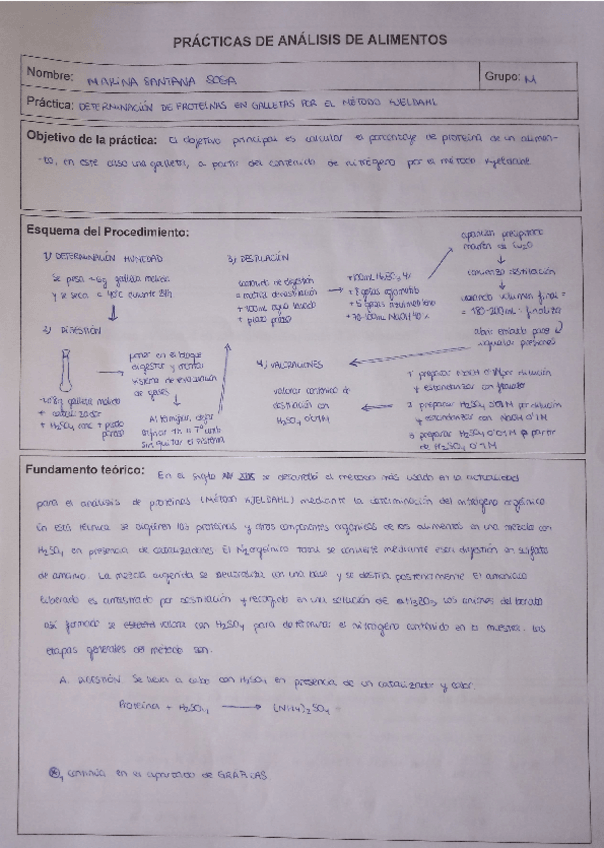 PRÁCTICAS DE ANÁLISIS DE ALIMENTOS
Nombre: MARINA SANTANA SOSA
Grupo: M
Práctica: DETERMINACIÓN DE PROTEÍNAS EN GALLETAS POR EL MÉTODO KJELDAHL
Objetivo de la práctica: El objetivo principal es calcular el porcentaje de proteína de un alimen-
-to, en este caso una galleta, a partir del contenido de nitrógeno por el método
Esquema del Procedimiento:
1) DETERMINACIÓN HUMEDAD
Se pesa galleta molida
y se seca a 40°C durante 24h
2) DIGESTIÓN
galleta molida
+ catalizador
+ H2SO4 conc + plato
poroso
poner en el bloque
digestor y montar
sistema de evacuación
de gases
Al terminar, dejar
enfriar
sin quitar el sistema
3) DESTILACIÓN
contenido de digestión
= matraz destilación
+ 300mL agua
+ plato poroso
+100mL H3BO3 4%
+ 8 gotas
+ 5 gotas
+ 70-100mL NaOH 40%
aparición precipitado
marrón de Cu2O
comienzo destilación
cuando volumen final =
= 180-200mL: finaliza
abrir para
igualar presiones
4) VALORACIONES
1 preparar NaOH por dilución
y estandarizar con ftalato
2 preparar H2SO4 por dilución
y estandarizar con NaOH 0'1M
3 preparar H2SO4 0'01M a partir
de H2SO4 0'1M
valorar contenido de
destilación con
H2SO4 0'01M
Fundamento teórico: En el siglo se desarrolló el método más usado en la actualidad
para el análisis de proteínas (MÉTODO KJELDAHL) mediante la determinación del nitrógeno orgánico
En esta técnica se digieren las proteínas y otros componentes orgánicos de los alimentos en una mezcla con
H2SO4 en presencia de catalizadores El N2 orgánico total se convierte mediante esta digestión en sulfato
de amonio. La mezcla digerida se neutraliza con una base y se destila posteriormente El amoniaco
liberado es arrastrado por destilación y recogido en una solución de H3BO3 Los aniones del borato
así formado se valora con H2SO4 para determinar el nitrógeno contenido en la muestra. Las
etapas generales del método son.
A. DIGESTIÓN Se lleva a cabo con H2SO4 en presencia de un catalizador y calor.
Proteína + H2SO4 → (NH4)2SO4
continúa en el apartado de GRÁFICAS